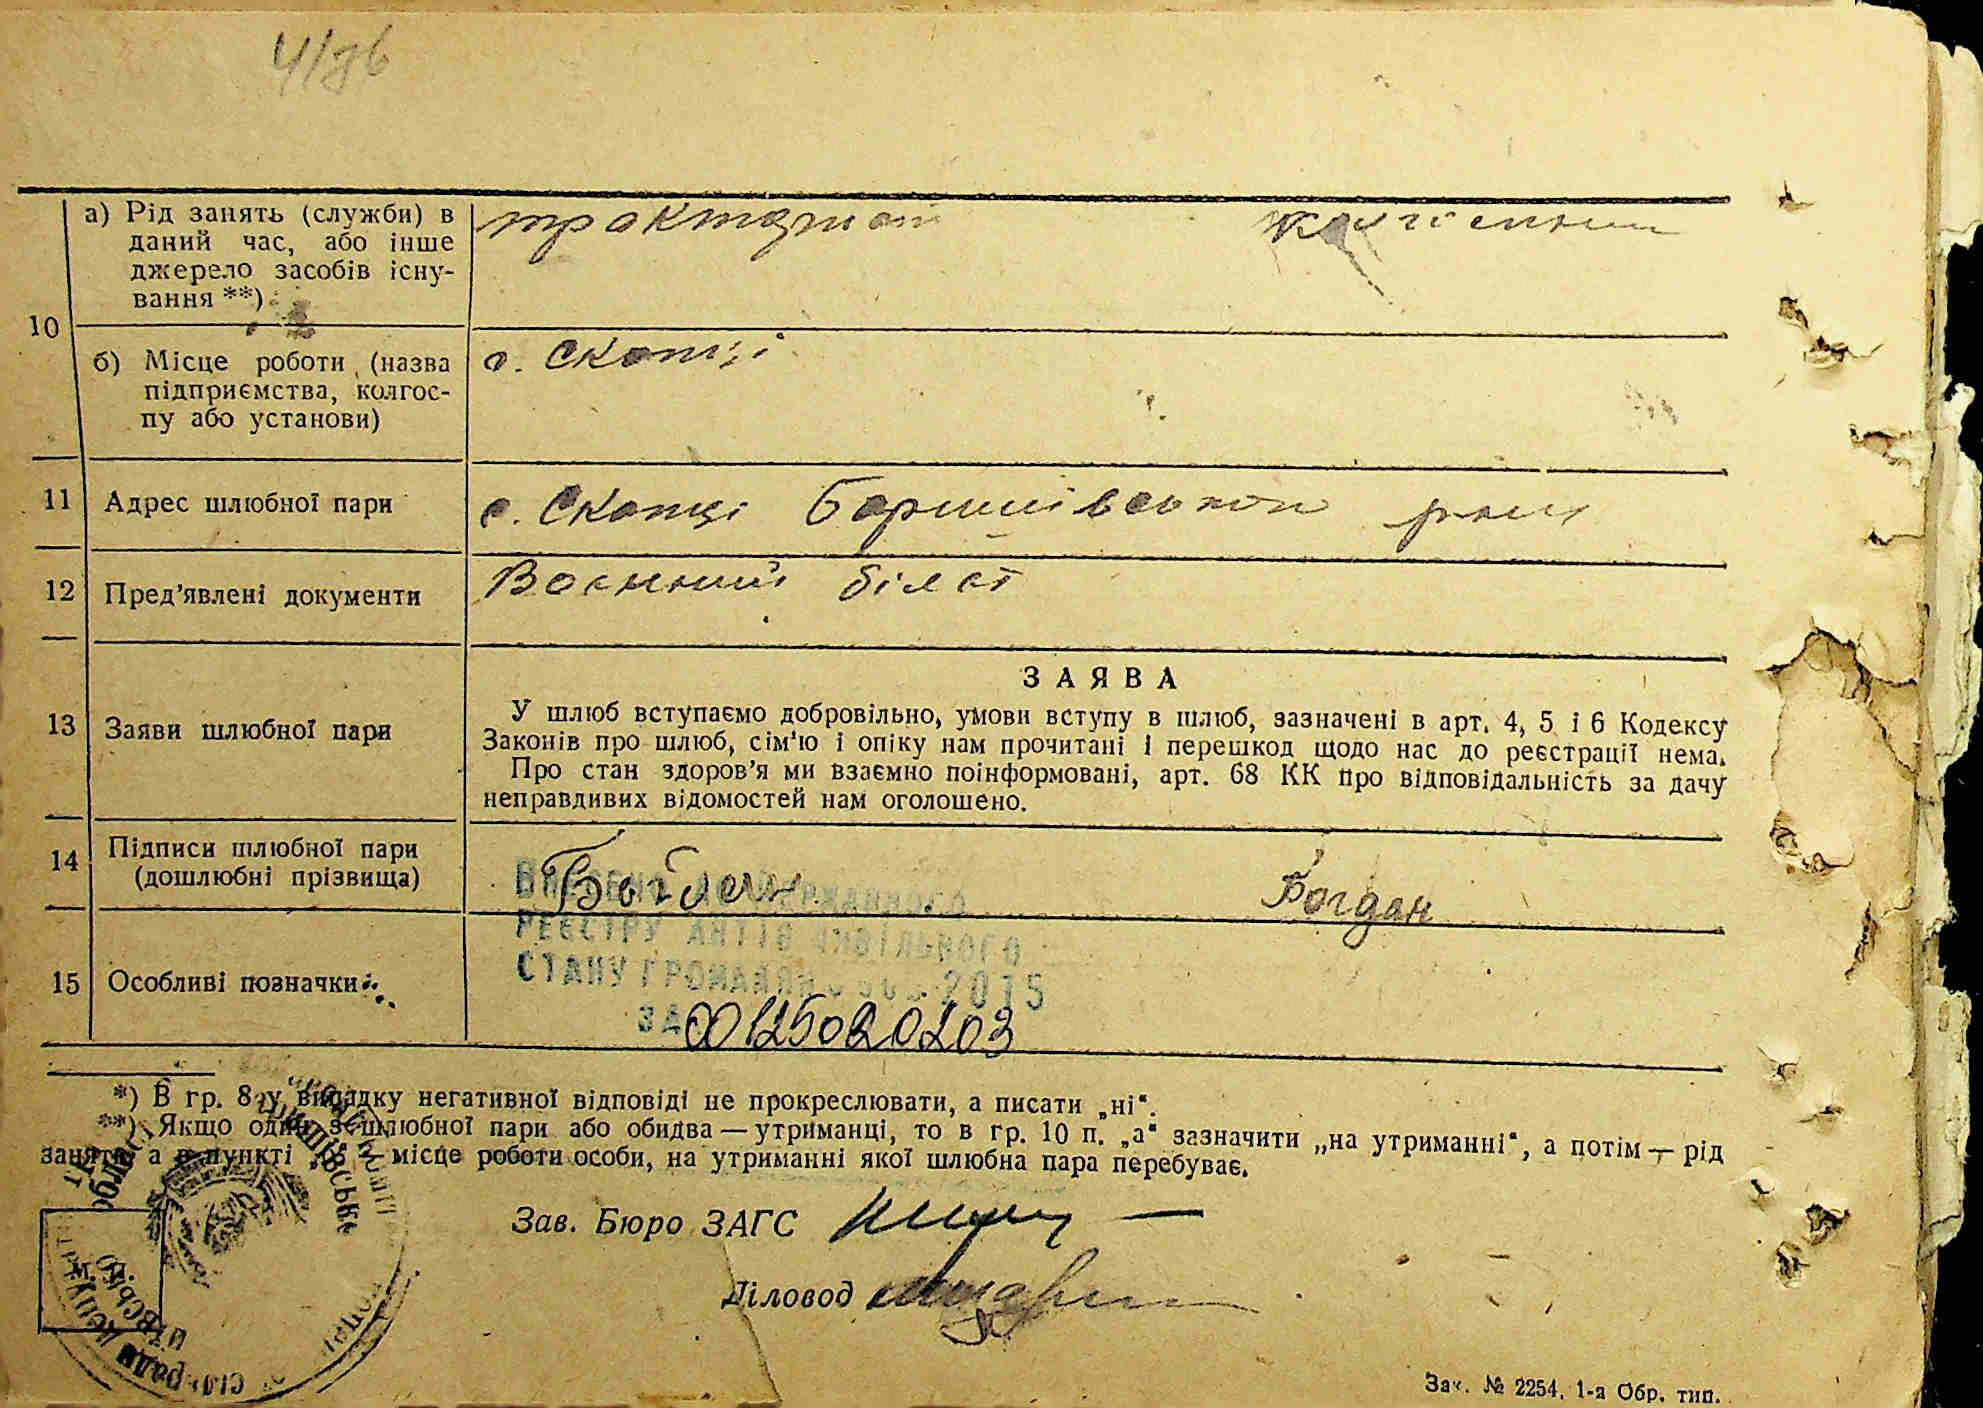 а) Рід занять (служби) в
даний час, або інше
джерело засобів існу-
вання **)
тракторист
10
б) Місце роботи (назва
підприємства, колгос-
пу або установи)
с. Скопці
11 Адрес шлюбної пари
с. Скопці Баришівського р-ну
12 Пред'явлені документи
Воєнний білет
ЗАЯВА
13 Заяви шлюбної пари
У шлюб вступаємо добровільно, умови вступу в шлюб, зазначені в арт. 4, 5 і 6 Кодексу
Законів про шлюб, сім'ю і опіку нам прочитані і перешкод щодо нас до реєстрації нема.
Про стан здоров'я ми взаємно поінформовані, арт. 68 КК про відповідальність за дачу
неправдивих відомостей нам оголошено.
14 Підписи шлюбної пари
(дошлюбні прізвища)
Богдан
ВНЕСЕНО ДО ДЕРЖАВНОГО
РЕЄСТРУ АКТІВ ЦИВІЛЬНОГО
СТАНУ ГРОМАДЯН 2015
ЗА 00125020203
15 Особливі позначки
*) В гр. 8 у випадку негативної відповіді не прокреслювати, а писати „ні“.
**) Якщо один з шлюбної пари або обидва — утриманці, то в гр. 10 п. „а“ зазначити „на утриманні“, а потім — рід
занять, а в пункті „б“ — місце роботи особи, на утриманні якої шлюбна пара перебуває.
Зав. Бюро ЗАГС
Діловод
М. П.
Зак. № 2254, 1-а Обр. тип.